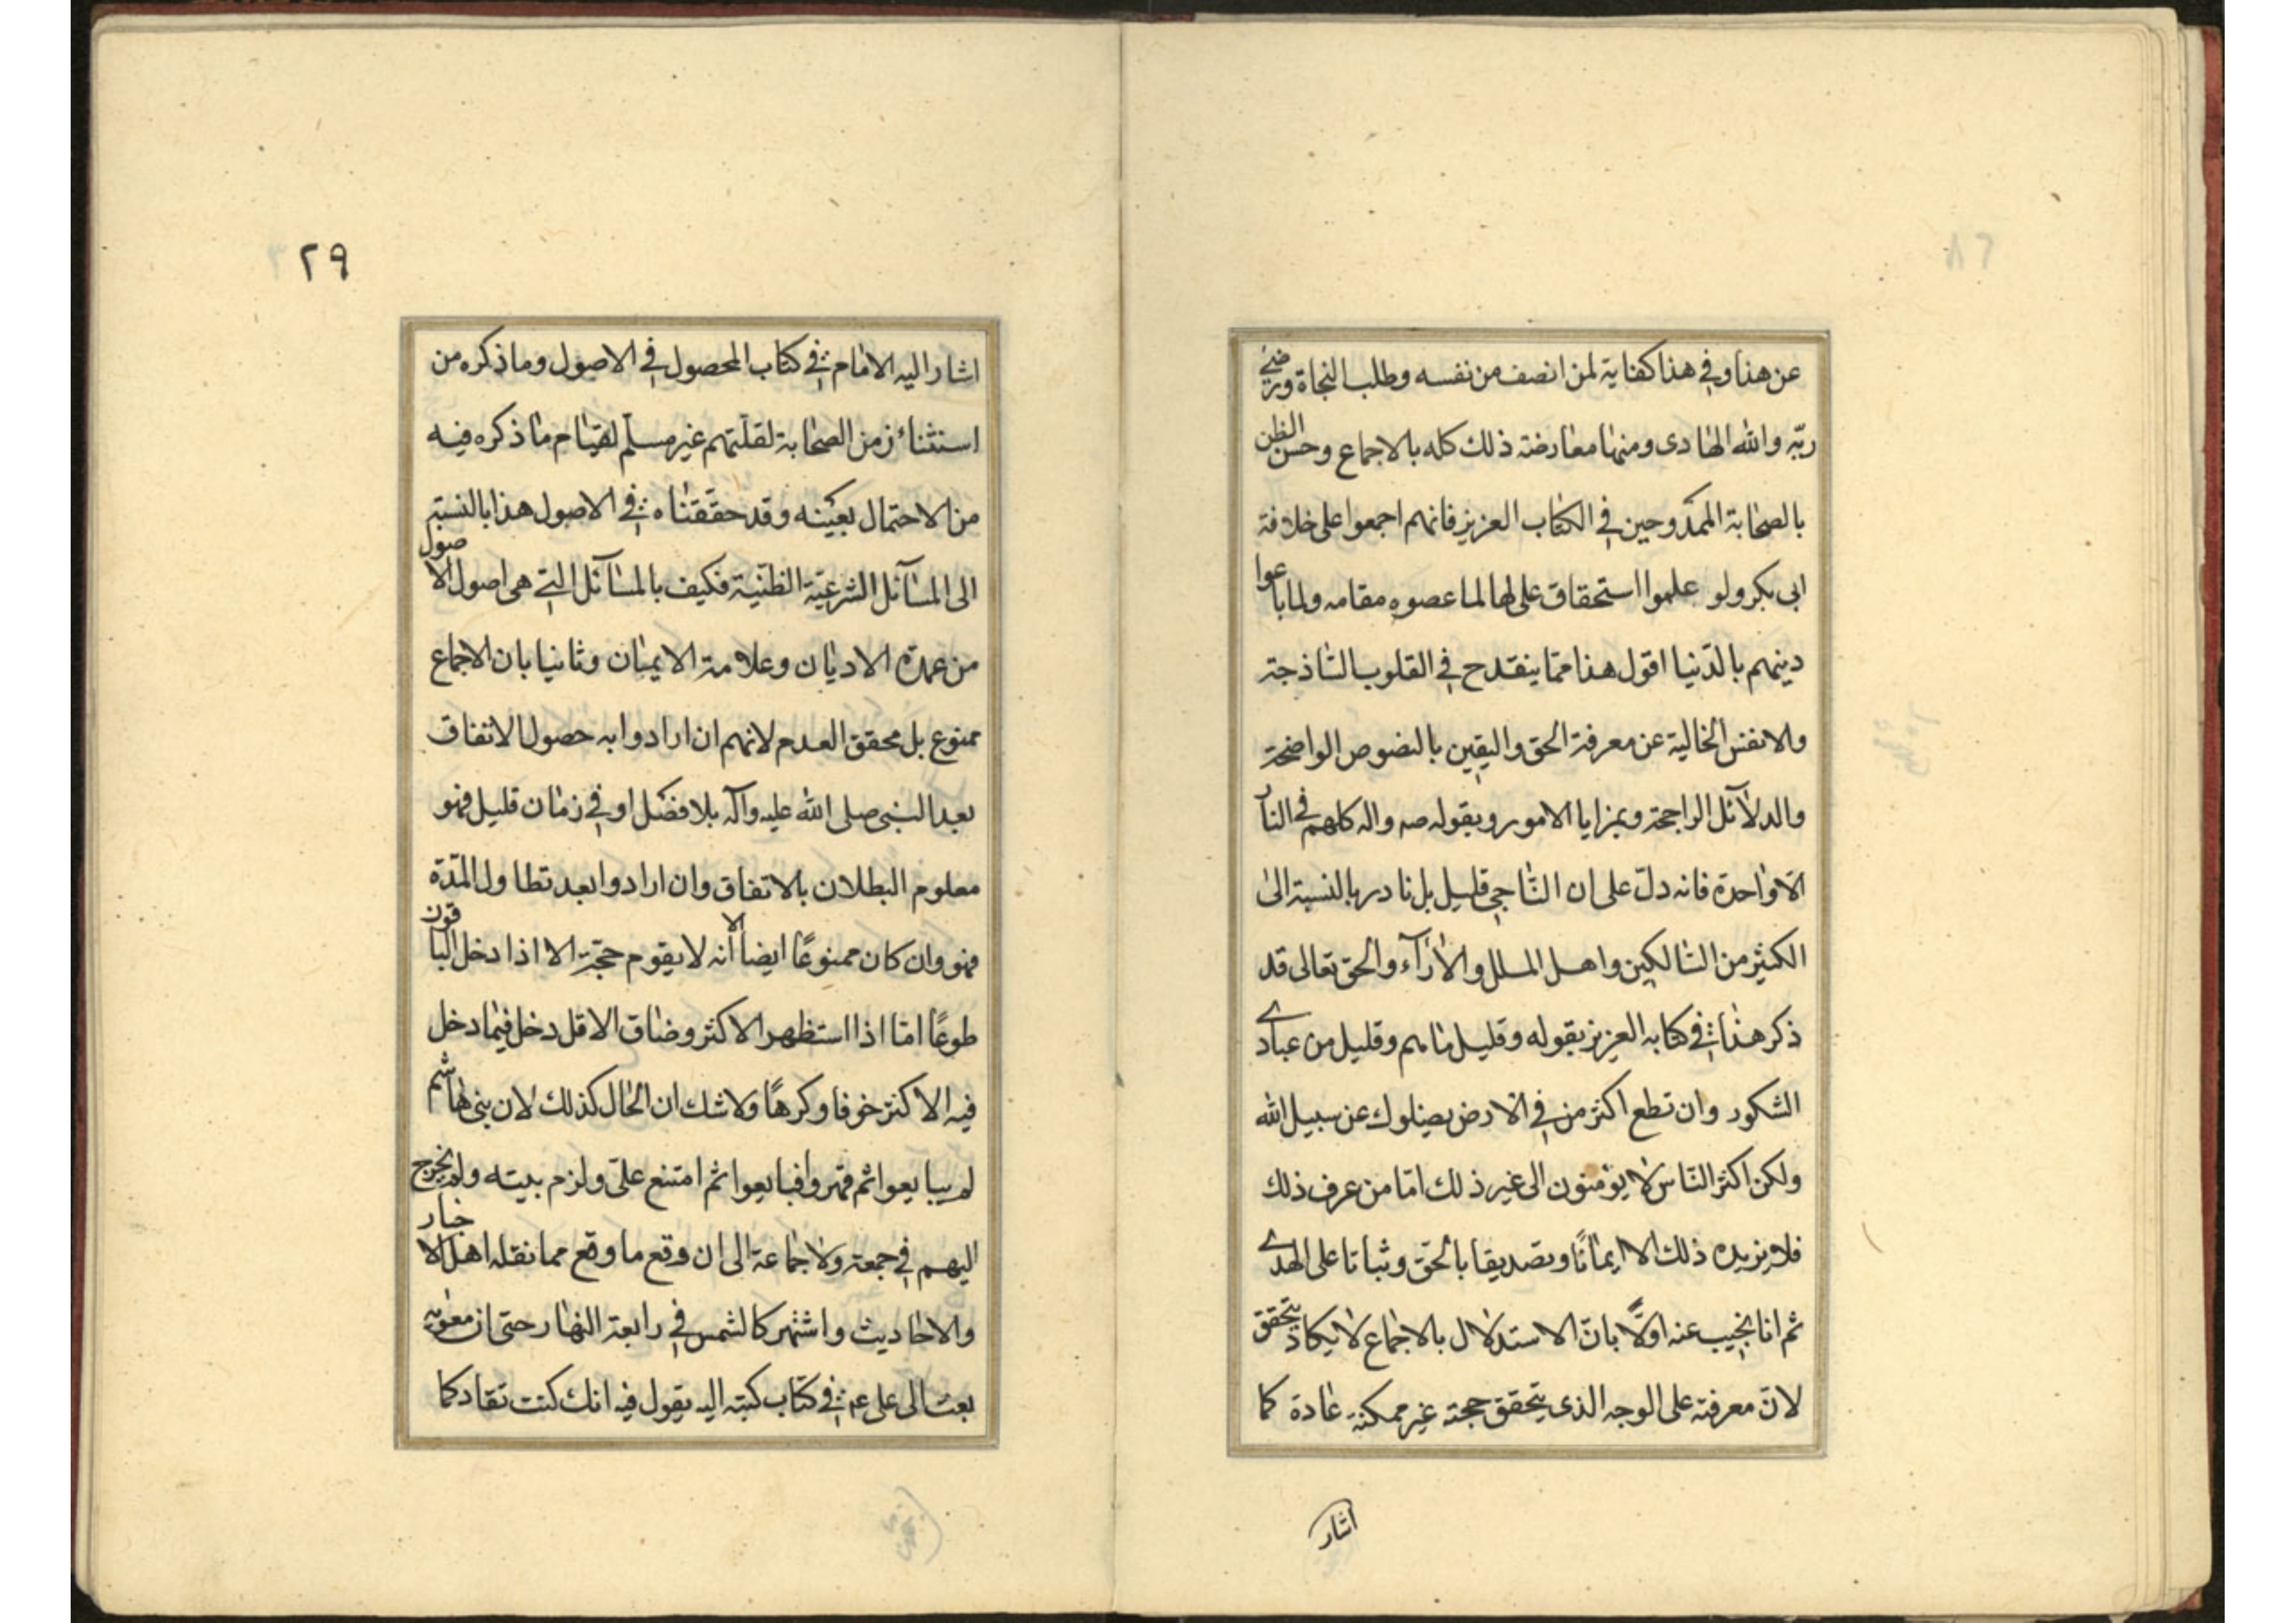 عن هذا وفي هذا كفاية لمن انصف من نفسه وطلب النجاة ورضى
ربّه والله الهادى ومنها معارضة ذلك كله بالاجماع وحسن الظن
بالصحابة الممدوحين في الكتاب العزيز فانهم اجمعوا على خلافة
ابى بكر ولو علموا استحقاق على لها لما عصوه مقامه ولما باعوا
دينهم بالدّنيا اقول هذا ممّا ينقدح في القلوب السّاذجة
والانفس الخالية عن معرفة الحق واليقين بالنصوص الواضحة
والدلآئل الراجحة وبمزايا الامور وبقوله صه واله كلهم في النار
الّا واحدة فانه دلّ على ان النّاجي قليل بل نادر بالنسبة الى
الكثير من السّالكين واهل الملل والآرآء والحق تعالى قد
ذكر هذا في كتابه العزيز بقوله وقليل ما هم وقليل من عبادى
الشكور وان تطع اكثر من في الارض يضلوك عن سبيل الله
ولكن اكثر النّاس لا يؤمنون الى غير ذلك امّا من عرف ذلك
فلا يزيده ذلك الا ايمانًا وتصديقا بالحق وثباتا على الهدى
ثم انا نجيب عنه اولًا بانّ الاستدلال بالاجماع لا يكاد يتحقق
لانّ معرفته على الوجه الذى يتحقق حجته غير ممكنة عادة كما
اشار
٢٩
اشار اليه الامام في كتاب المحصول في الاصول وما ذكره من
استثناء زمن الصحابة لقلّتهم غير مسلّم لقيام ما ذكره فيه
من الاحتمال بعينه وقد حقّقناه في الاصول هذا بالنسبة
الى المسآئل الشرعيّة الظنّية فكيف بالمسآئل التي هى اصول الاصول
من عمدة الاديان وعلامة الايمان وثانيا بان الاجماع
ممنوع بل محقق العدم لانهم ان ارادوا به حصول الاتفاق
بعد النبى صلى الله عليه وآله بلا فصل او في زمان قليل فهو
معلوم البطلان بالاتفاق وان ارادوا بعد تطاول المدّة
فهو وان كان ممنوعًا ايضا الا انه لا يقوم حجّة الا اذا دخل الباقون
طوعًا امّا اذا استظهر الاكثر وضاق الاقل دخل فيما دخل
فيه الاكثر خوفا وكرهًا ولا شك ان الحال كذلك لان بنى هاشم
لم يبايعوا ثم قهروا فبايعوا ثم امتنع علىّ ولزم بيته ولم يخرج
اليهم في جمعة ولا جماعة الى ان وقع ما وقع مما نقله اهل الاخبار
والاحاديث واشتهر كالشمس في رابعة النهار حتى ان معوية
بعث الى على عم في كتاب كتبه اليه يقول فيه انك كنت تقاد كما